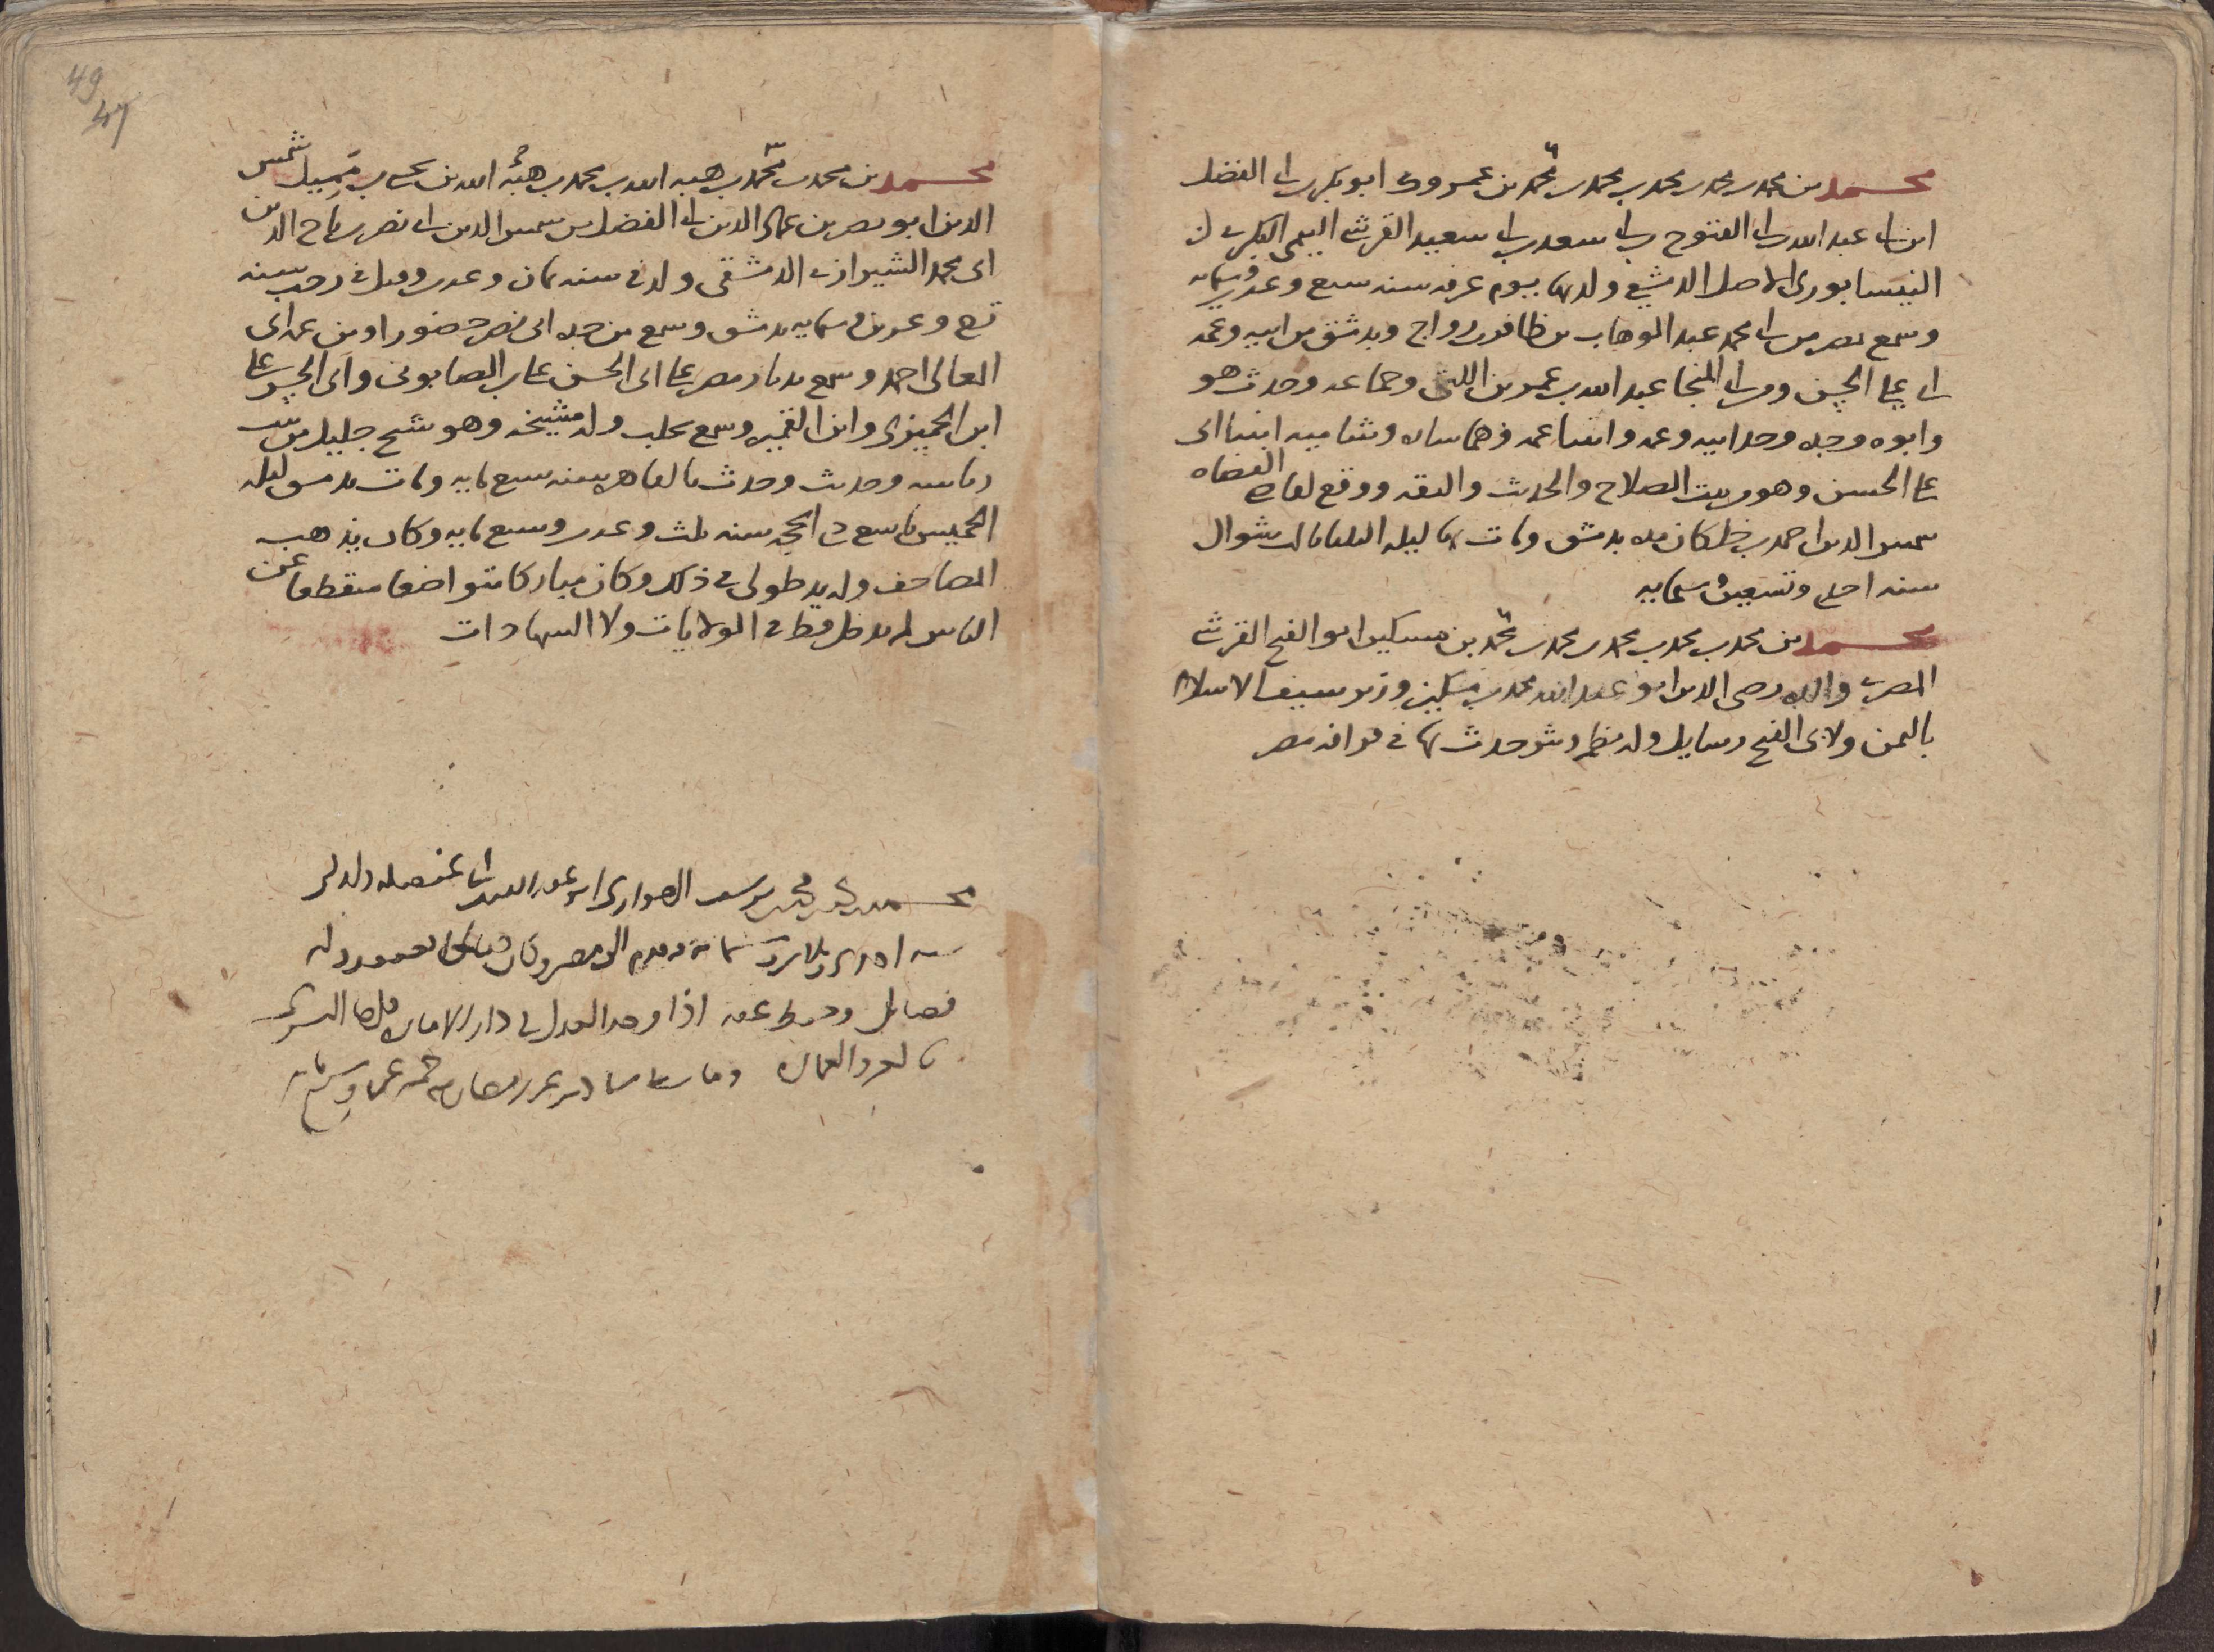 محمد بن محمد بن محمد بن محمد بن محمد بن محمد بن عمروك ابو بكر بن ابي الفضل
ابن ابي عبد الله بن ابي الفتوح بن ابي سعد بن ابي سعيد القرشي التيمي البكري
النيسابوري الاصل الدمشقي ولد بها يوم عرفه سنه سبع وعشرين وستمايه
وسمع بمصر من ابي محمد عبد الوهاب بن ظافر بن رواج وبدمشق من ابيه وعمه
ابي علي الحسن ومن ابي المنجا عبد الله بن عمر بن اللتي وجماعه وحدث هو
وابوه وجده وجد ابيه وعمه وابنا عمه وهما ساره وشاميه ابنتا ابي
علي الحسن وهو من بيت الصلاح والحديث والفقه ووقع لقاضي القضاه
شمس الدين احمد بن خلكان مده بدمشق ومات بها ليله الثلاثا ثالث شوال
سنه احدى وتسعين وستمايه
محمد بن محمد بن محمد بن محمد بن محمد بن محمد بن مسكين ابو الفتح القرشي
المصري والده رضى الدين ابو عبد الله محمد بن مسكين وزير سيف الاسلام
باليمن ولابي الفتح رسايل وله نظم ونثر حدث بها في قرافه مصر
49
47
محمد بن محمد بن محمد بن هبه الله بن محمد بن هبه الله بن يحيى بن مميل شمس
الدين ابو نصر بن عماد الدين ابي الفضل بن شمس الدين ابي نصر بن تاج الدين
ابي محمد الشيرازي الدمشقي ولد في سنه ثمان وعشرين وقيل في رجب سنه
تسع وعشرين وستمايه بدمشق وسمع من جده ابي نصر حضورا ومن عم ابي
المعالى احمد وسمع بديار مصر على ابي الحسن علي بن الصابوني وابي الحسن علي
ابن الجميزي وابن القميره وسمع بحلب وله مشيخه وهو شيخ جليل من بيت
رياسه وحديث وحدث بالقاهره سنه سبع مايه ومات بدمشق ليله
الخميس تاسع ذي الحجه سنه ثلث وعشرين وسبع مايه وكان يذهب
المصاحف وله يد طولى في ذلك وكان مباركا متواضعا منقطعا عن
الناس لم يدخل قط في الولايات ولا الشهادات
محمد بن محمد بن محمد بن يوسف الهواري ابو عبد الله
سنه احدى وثلاثين وستمايه وقدم الى مصر وكان
فضايل
ومات سادس عشر رمضان سنه خمس عشره وسبع مايه